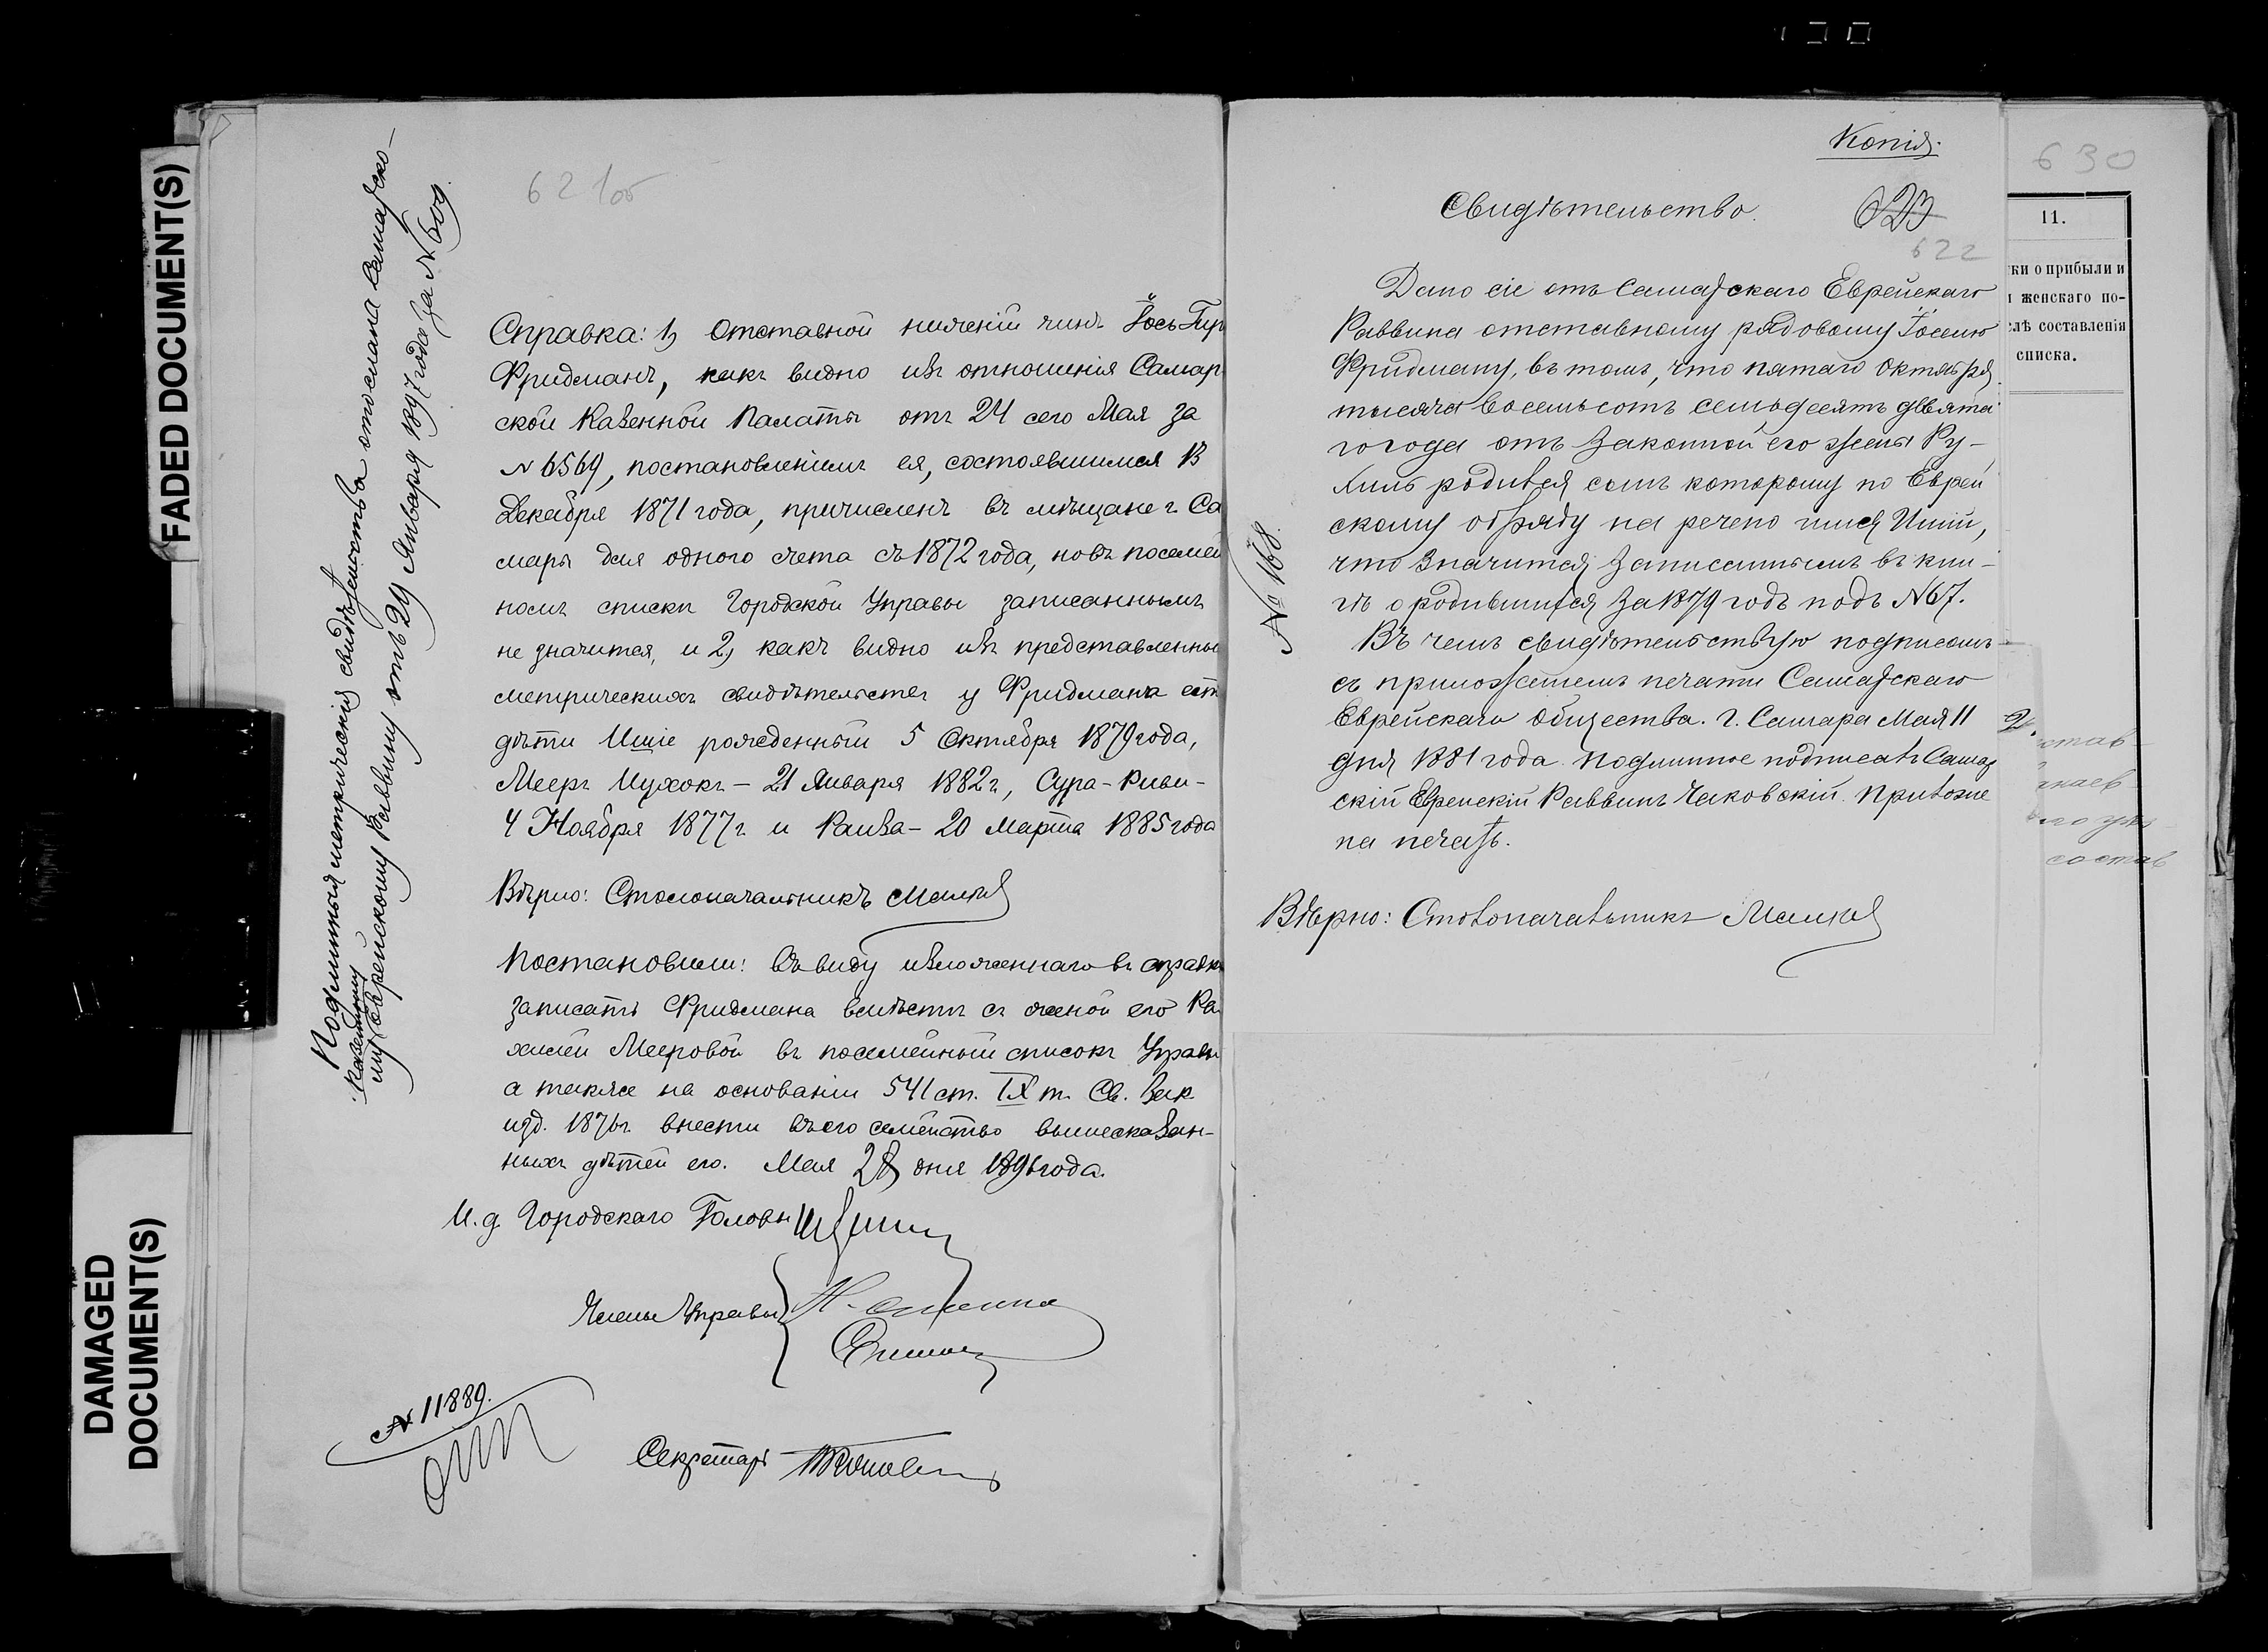 FADED DOCUMENT(S)
DAMAGED
DOCUMENT(S)
621об
Подлинныя метрическія свидѣтельства отосланы Самарско-
му Еврейскому Раввину отъ 29 Января 1897 года за № 609.
казенному
Справка: 1) Отставной нижній чинъ Іось Гир
Фридманъ, какъ видно изъ отношенія Самар
ской Казенной Палаты отъ 24 сего Мая за
№ 6569, постановленіемъ ея, состоявшимся 13
Декабря 1871 года, причисленъ въ мѣщане г. Са
мары для одного счета съ 1872 года, но въ посемей
номъ списки Городской Управы записаннымъ
не значится, и 2) какъ видно изъ представленны
метрическихъ свидѣтельствъ у Фридмана ест
дѣти Ицiе рожденный 5 Октября 1879 года,
Мееръ Ицхокъ – 21 Января 1882 г, Сура-Риви-
4 Ноября 1877 г. и Раиза – 20 Марта 1885 года
Вѣрно: Столоначальникъ
Постановили: въ виду изложеннаго въ справк
записать Фридмана вмѣстѣ съ женой его Ра
хилей Мееровой въ посемейный списокъ Управы
а также на основаніи 541 ст. IX т. Св. Зак
изд. 1876 г. внести въ его семейство вышесказан-
ныхъ дѣтей его. Мая 28 дня 1896 года.
И. д. Городского Головы
Члены Управы
№ 11889.
Секретарь
Копія.
Свидѣтельство.
623
622
Дано сіе отъ Самарскаго Еврейскаго
Раввина отставному рядовому Іоселю
Фридману, въ томъ, что пятаго Октября
тысяча восемьсотъ семьдесятъ девята
го года отъ законной его жены Ру-
хиль родился сынъ которому по Еврей
скому обряду на речено имя Ицiи,
что значится записаннымъ въ кни-
гѣ о родившихся за 1879 годъ подъ №67.
Въ чемъ свидѣтельствую подписомъ
съ приложеніемъ печати Самарскаго
Еврейскаго Общества. г. Самара Мая 11
дня 1881 года. Подлинное подписалъ Самар
скій Еврейскій Раввинъ Чаковскій. Приложе
на печать.
№ 168.
Вѣрно: Столоначальникъ
630
11.
ки о прибыли и
женскаго по-
слѣ составленія
списка.
став
состав